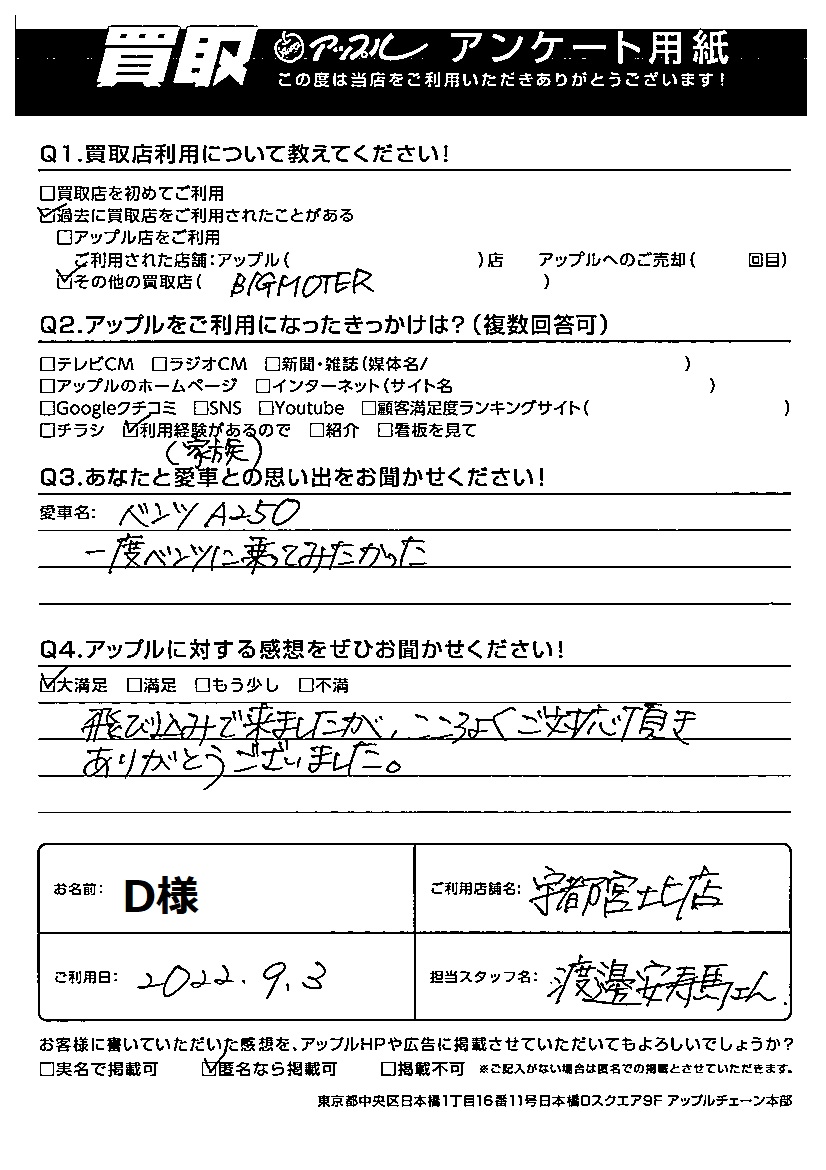 買取 アップル アンケート用紙
この度は当店をご利用いただきありがとうございます!
Q1.買取店利用について教えてください!
□買取店を初めてご利用
☑過去に買取店をご利用されたことがある
□アップル店をご利用
ご利用された店舗:アップル( )店 アップルへのご売却( 回目)
☑その他の買取店( BIGMOTER )
Q2.アップルをご利用になったきっかけは?(複数回答可)
□テレビCM □ラジオCM □新聞・雑誌(媒体名/ )
□アップルのホームページ □インターネット(サイト名 )
□Googleクチコミ □SNS □Youtube □顧客満足度ランキングサイト( )
□チラシ ☑利用経験があるので □紹介 □看板を見て
(家族)
Q3.あなたと愛車との思い出をお聞かせください!
愛車名: ベンツ A250
一度ベンツに乗ってみたかった
Q4.アップルに対する感想をぜひお聞かせください!
☑大満足 □満足 □もう少し □不満
飛び込みで来ましたが、こころよくご対応頂き
ありがとうございました。
お名前: D様 ご利用店舗名: 宇都宮北店
ご利用日: 2022.9.3 担当スタッフ名: 渡邉安寿馬さん
お客様に書いていただいた感想を、アップルHPや広告に掲載させていただいてもよろしいでしょうか?
□実名で掲載可 ☑匿名なら掲載可 □掲載不可 ※ご記入がない場合は匿名での掲載とさせていただきます。
東京都中央区日本橋1丁目16番11号日本橋Dスクエア9F アップルチェーン本部